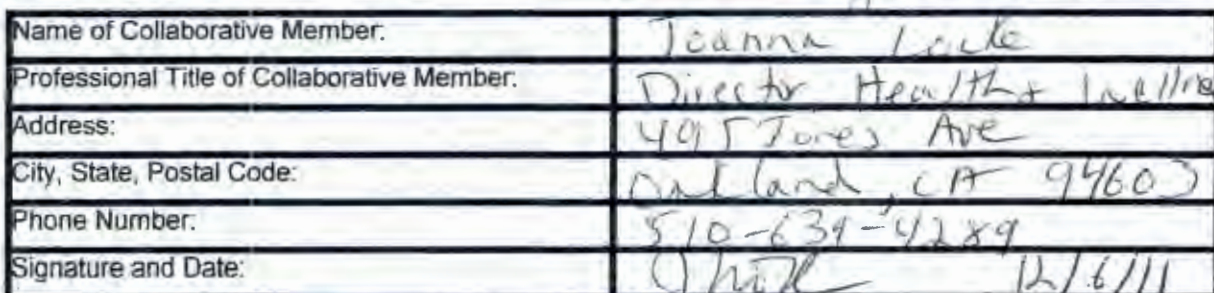 Name of Collaborative Member: Joanna Locke
Professional Title of Collaborative Member: Director Health + Wellne
Address: 495 Jones Ave
City, State, Postal Code: Oakland, CA 94603
Phone Number: 510-639-4289
Signature and Date: 12/6/11